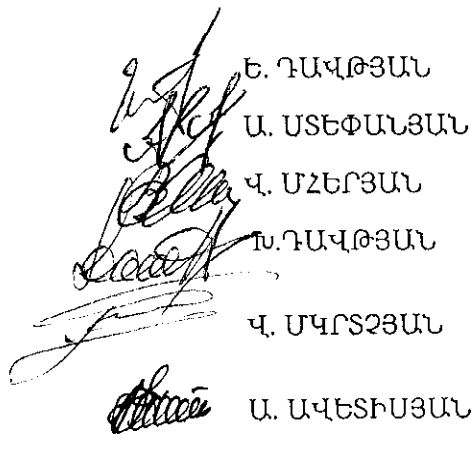 Ե. ԴԱՎԹՅԱՆ
Ա. ՍՏԵՓԱՆՅԱՆ
Վ. ՄՀԵՐՅԱՆ
Խ.ԴԱՎԹՅԱՆ
Վ. ՄԿՐՏՉՅԱՆ
Ա. ԱՎԵՏԻՍՅԱՆ